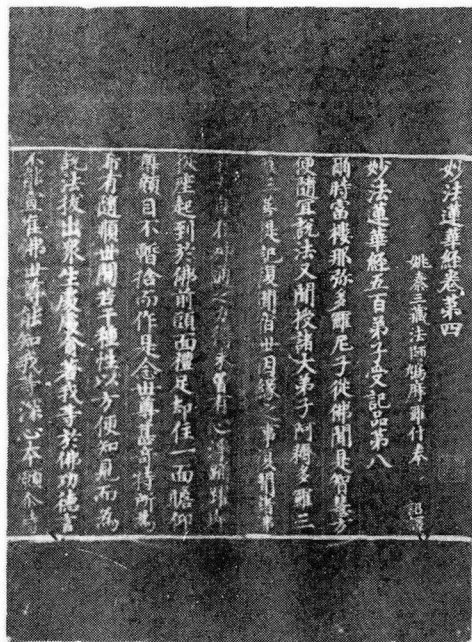 妙法蓮華經卷第四
姚秦三藏法師鳩摩羅什奉 詔譯
妙法蓮華經五百弟子受記品第八
爾時富樓那弥多羅尼子從佛聞是智慧方
便隨宜說法又聞授諸大弟子阿耨多羅三
三菩提記復聞宿世因緣之事復聞諸
自在神通之力得未曾有心淨踊躍即
從座起到於佛前頭面禮足却住一面瞻仰
尊顏目不暫捨而作是念世尊甚奇特所為
希有隨順世間若干種性以方便知見而為
說法拔出衆生處處貪著我等於佛功德言
不能宣唯佛世尊能知我等深心本願尒時